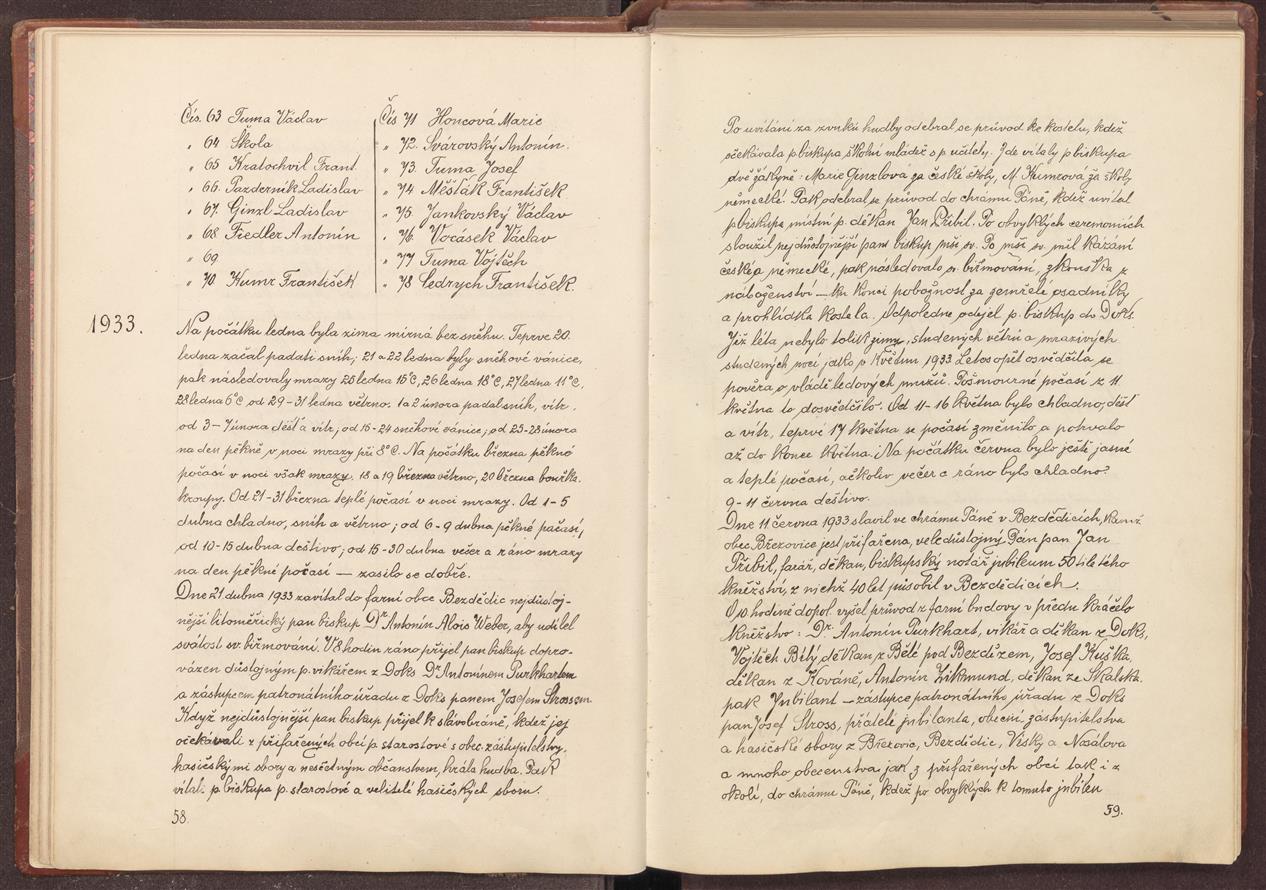 Čís. 63 Tuma Václav
„ 64 Škola
„ 65 Kratochvil Frant.
„ 66. Pazderník Ladislav
„ 67. Ginzl Ladislav
„ 68 Fiedler Antonín
„ 69
„ 70 Kumr František
Čís 71 Honcová Marie
„ 72. Svárovský Antonín.
„ 73. Tuma Josef
„ 74 Měsťák František
„ 75. Jankovský Václav
„ 76. Vocásek Václav
„ 77 Tuma Vojtěch
„ 78 Sedrych František.
1933.
Na počátku ledna byla zima mírná bez sněhu. Teprve 20.
ledna začal padati sníh; 21 a 22 ledna byly sněhové vánice,
pak následovaly mrazy 25 ledna 15°C, 26 ledna 18°C, 27 ledna 11°C,
28 ledna 6°C od 29-31 ledna větrno. 1 a 2 února padal sníh, vítr.
od 3-7 února déšť a vítr; od 15-24 sněhové vánice; od 25-28 února
na den pěkně v noci mrazy při 8°C. Na počátku března pěkné
počasí v noci však mrazy. 18 a 19 března větrno, 20 března bouřka.
kroupy. Od 21-31 března teplé počasí v noci mrazy. Od 1-5
dubna chladno, sníh a větrno; od 6-9 dubna pěkné počasí,
od 10-15 dubna deštivo; od 15-30 dubna večer a ráno mrazy
na den pěkné počasí — zasilo se dobře.
Dne 21 dubna 1933 zavítal do farní obce Bezdědic nejdůstoj-
nější litoměřický pan biskup Dr Antonín Alois Weber, aby udílel
svátost sv. biřmování. V 8 hodin ráno přijel pan biskup dopro-
vázen důstojným p. vikářem z Doks Dr Antonínem Purkhartem
a zástupcem patronátního úřadu z Doks panem Josefem Strossem.
Když nejdůstojnější pan biskup přijel k slavobráně, kdež jej
očekávali z přifařených obcí p. starostové s obec. zastupitelstvy,
hasičskými sbory a nesčetným občanstvem, hrála hudba. Pak
vítali p. biskupa p. starostové a velitelé hasičských sboru.
58.
Po uvítání za zvuků hudby odebral se průvod ke kostelu, kdež
očekávala p. biskupa školní mládež s p. učiteli. Zde vítaly p. biskupa
dvě žákyně: Marie Ginzlova za české školy, M. Kumrová za školy
německé. Pak odebral se průvod do chrámu Páně, kdež uvítal
p. biskupa místní p. děkan Jan Přibil. Po obvyklých ceremoniích
sloužil nejdůstojnější pan biskup mši sv. Po mši sv. měl kázání
české a německé, pak následovalo sv. biřmování, zkouška z
náboženství — ku konci pobožnost za zemřelé osadníky
a prohlídka kostela. Odpoledne odejel p. biskup do Doks.
Již léta nebylo tolik zimy, studených větrů a mrazivých
studených nocí jako v Květnu 1933 Letos opět osvědčila se
pověra o vládě ledových mužů. Pošmourné počasí z 11
května to dosvědčilo. Od 11-16 května bylo chladno, déšť
a vítr, teprve 17 května se počasí změnilo a potrvalo
až do konce května. Na počátku června bylo ještě jasné
a teplé počasí, ačkoliv večer a ráno bylo chladno.
9-11 června deštivo.
Dne 11 června 1933 slavil ve chrámu Páně v Bezdědicích, kamž
obec Březovice jest přifařena, veledůstojný Pán pan Jan
Přibil, farář, děkan, biskupský notář jubileum 50 ti letého
kněžství, z nichž 40 let působil v Bezdědicích.
O 10. hodině dopol. vyšel průvod z farní budovy v předu kráčelo
kněžstvo: Dr. Antonín Purkhart, vikář a děkan z Doks,
Vojtěch Bílý, děkan z Bělé pod Bezdězem, Josef Kuška,
děkan z Kováně, Antonín Zikmund, děkan ze Skalska.
pak Jubilant — zástupce patronátního úřadu z Doks
pan Josef Stross, přátelé jubilanta, obecní zastupitelstva
a hasičské sbory z Březovic, Bezdědic, Vísky a Nosálova
a mnoho obecenstva jak z přifařených obcí tak i z
okolí, do chrámu Páně, kdež po obvyklých k tomuto jubileu
59.